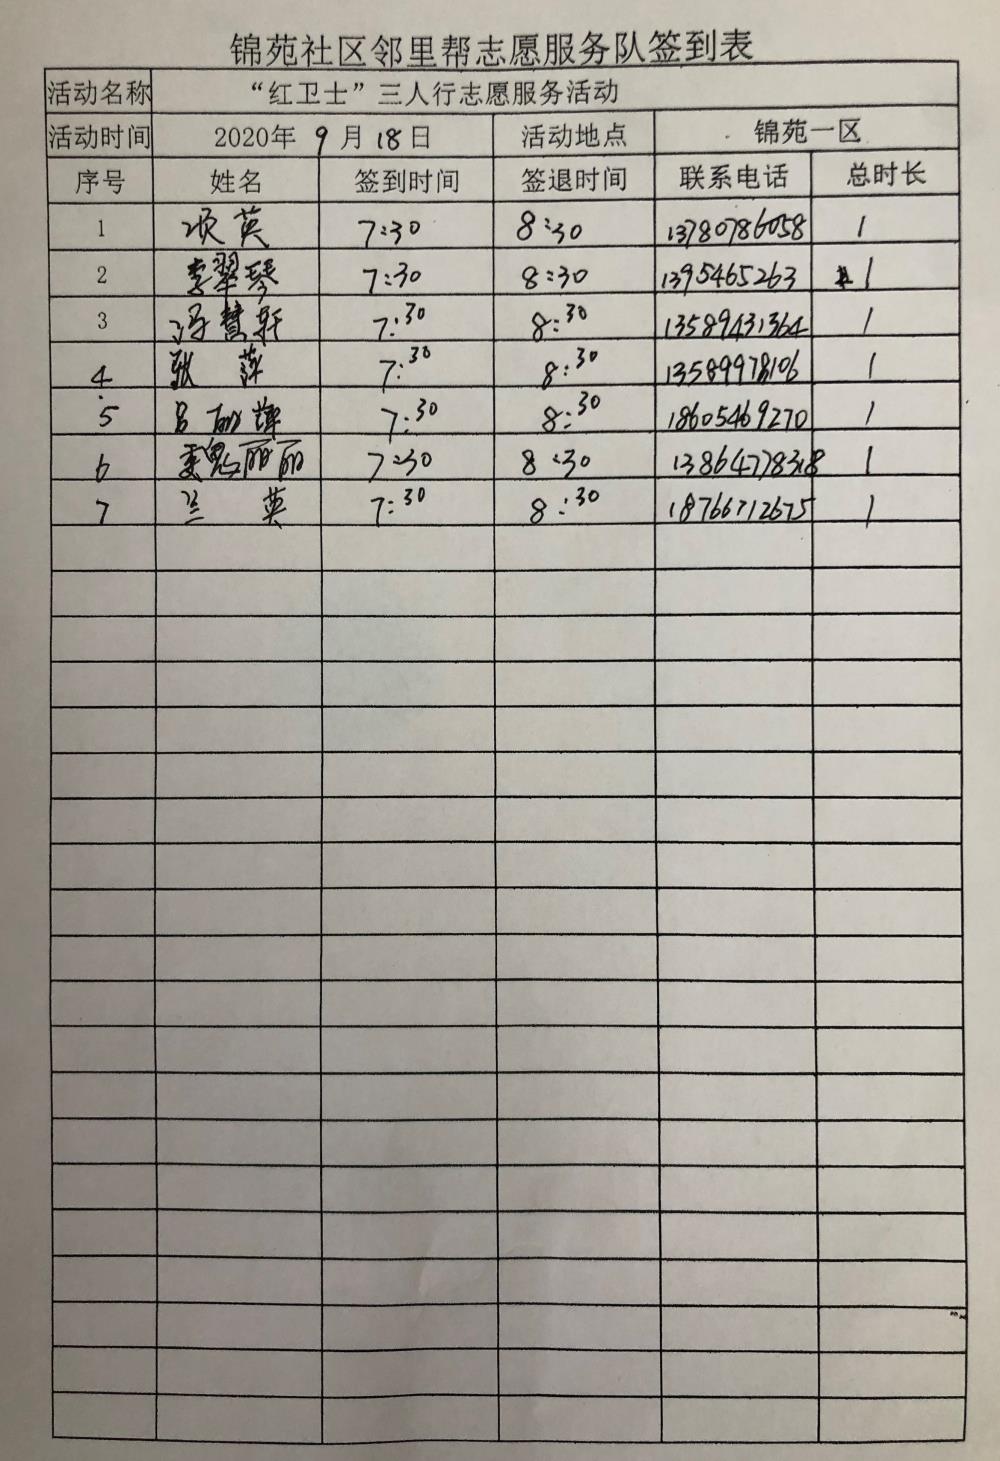 锦苑社区邻里帮志愿服务队签到表
活动名称 “红卫士”三人行志愿服务活动
活动时间 2020年 9 月 18 日 活动地点 锦苑一区
序号 姓名 签到时间 签退时间 联系电话 总时长
1 项英 7:30 8:30 13780786058 1
2 李翠琴 7:30 8:30 1395465263 1
3 冯慧轩 7:30 8:30 13589431364 1
4 张萍 7:30 8:30 13589978106 1
5 吕丽萍 7:30 8:30 18605469270 1
6 魏丽丽 7:30 8:30 13864778318 1
7 兰英 7:30 8:30 18766712675 1